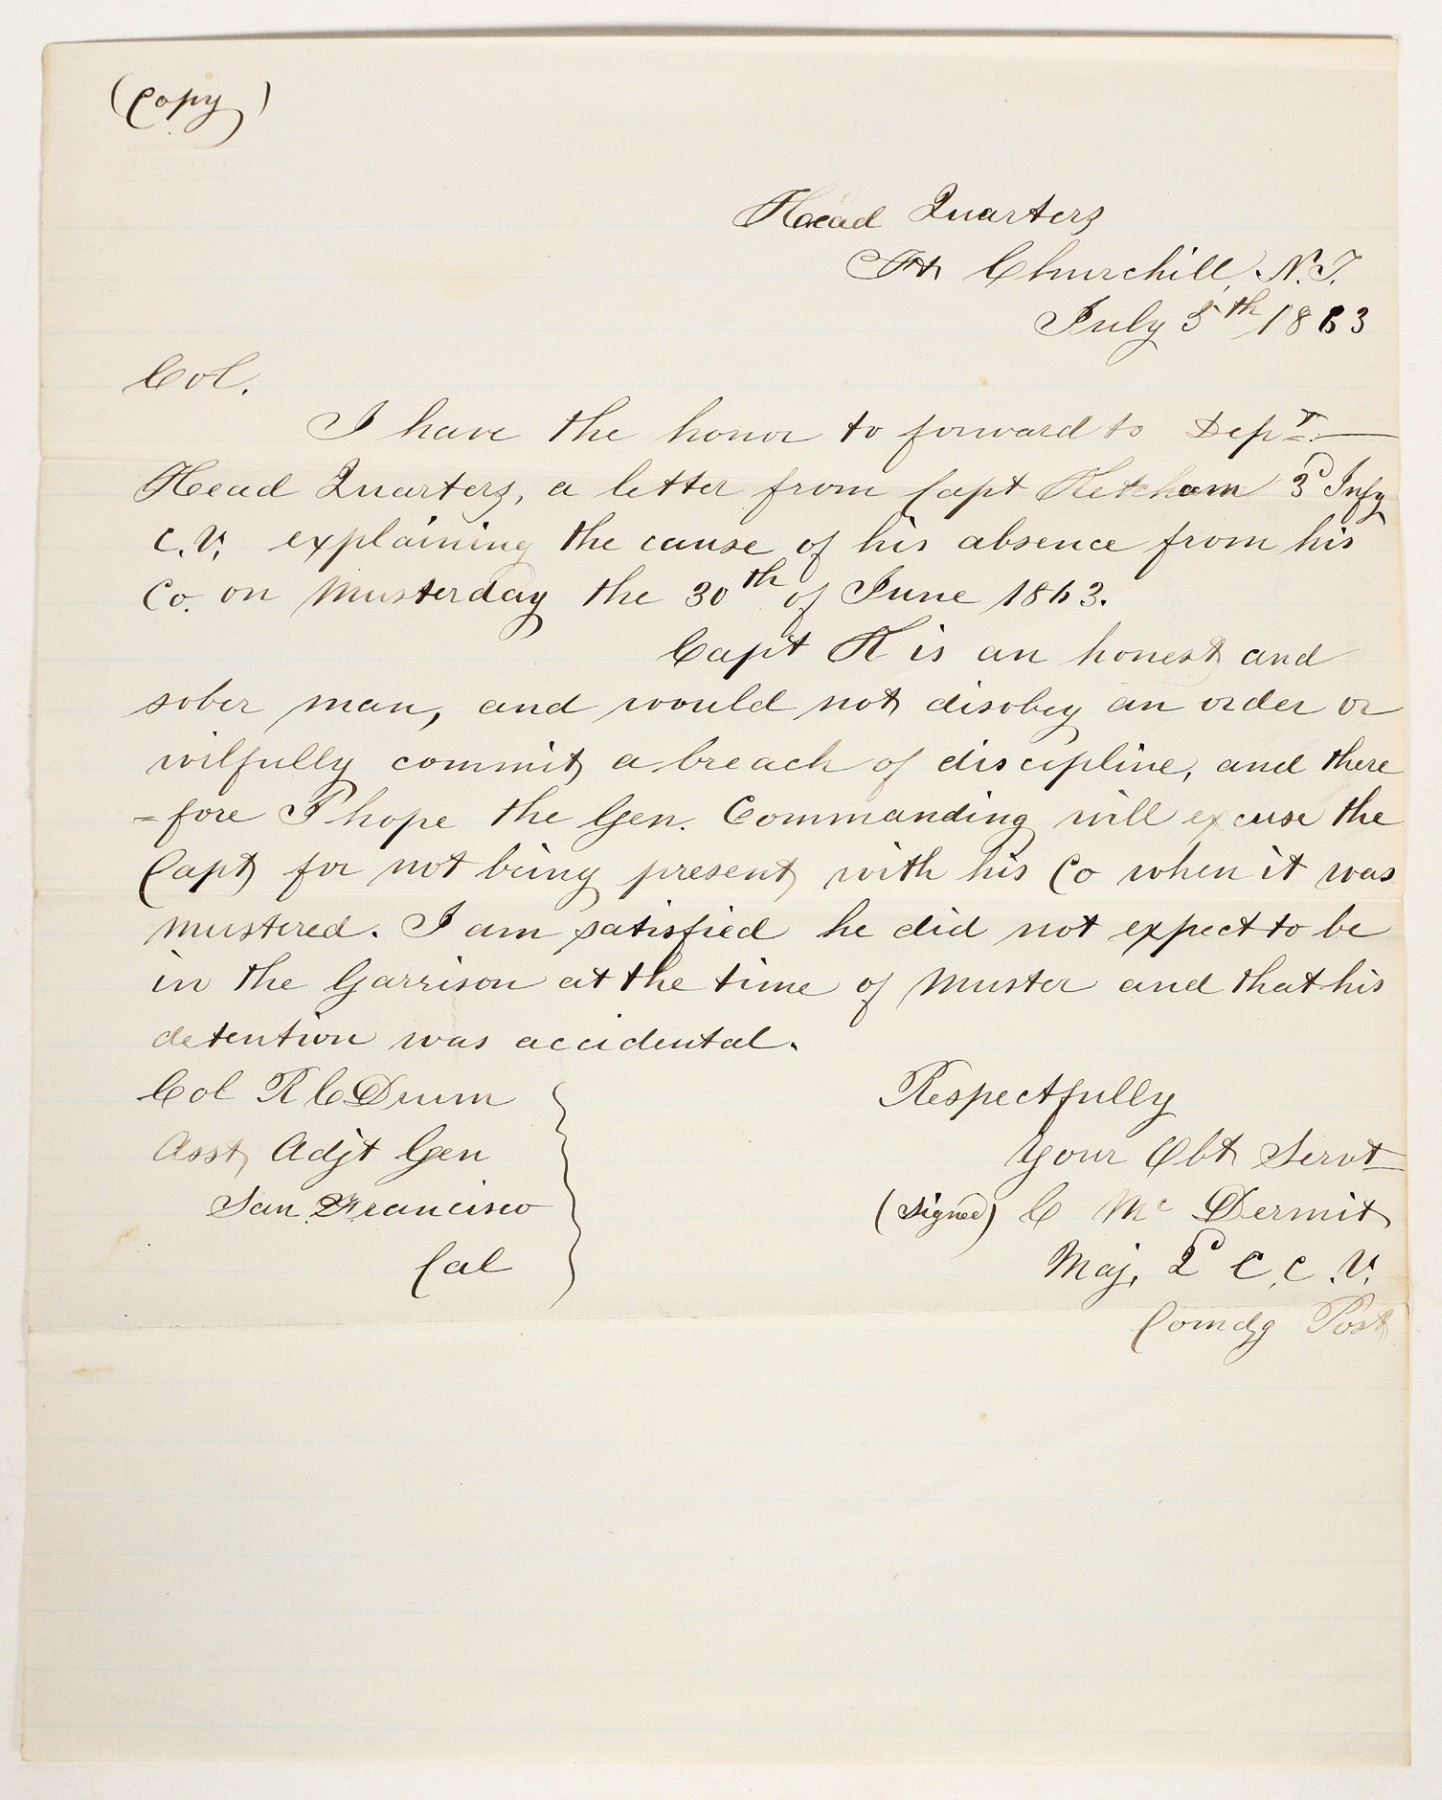 (Copy)
Head Quarters
Ft Churchill, N.T.
July 5th 1863
Col.
I have the honor to forward to Dept.
Head Quarters, a letter from Capt Ketcham 3d Infy
C.V. explaining the cause of his absence from his
Co. on Musterday the 30th of June 1863.
Capt K is an honest and
sober man, and would not disobey an order or
wilfully commit a breach of discipline, and there
=fore I hope the Gen. Commanding will excuse the
Capt for not being present with his Co when it was
mustered. I am satisfied he did not expect to be
in the Garrison at the time of Muster and that his
detention was accidental.
Col R C Drum
Asst Adjt Gen
San Francisco
Cal
Respectfully
Your Obt Servt
(Signed) C McDermit
Maj, 2d C.C.V.
Comdg Post